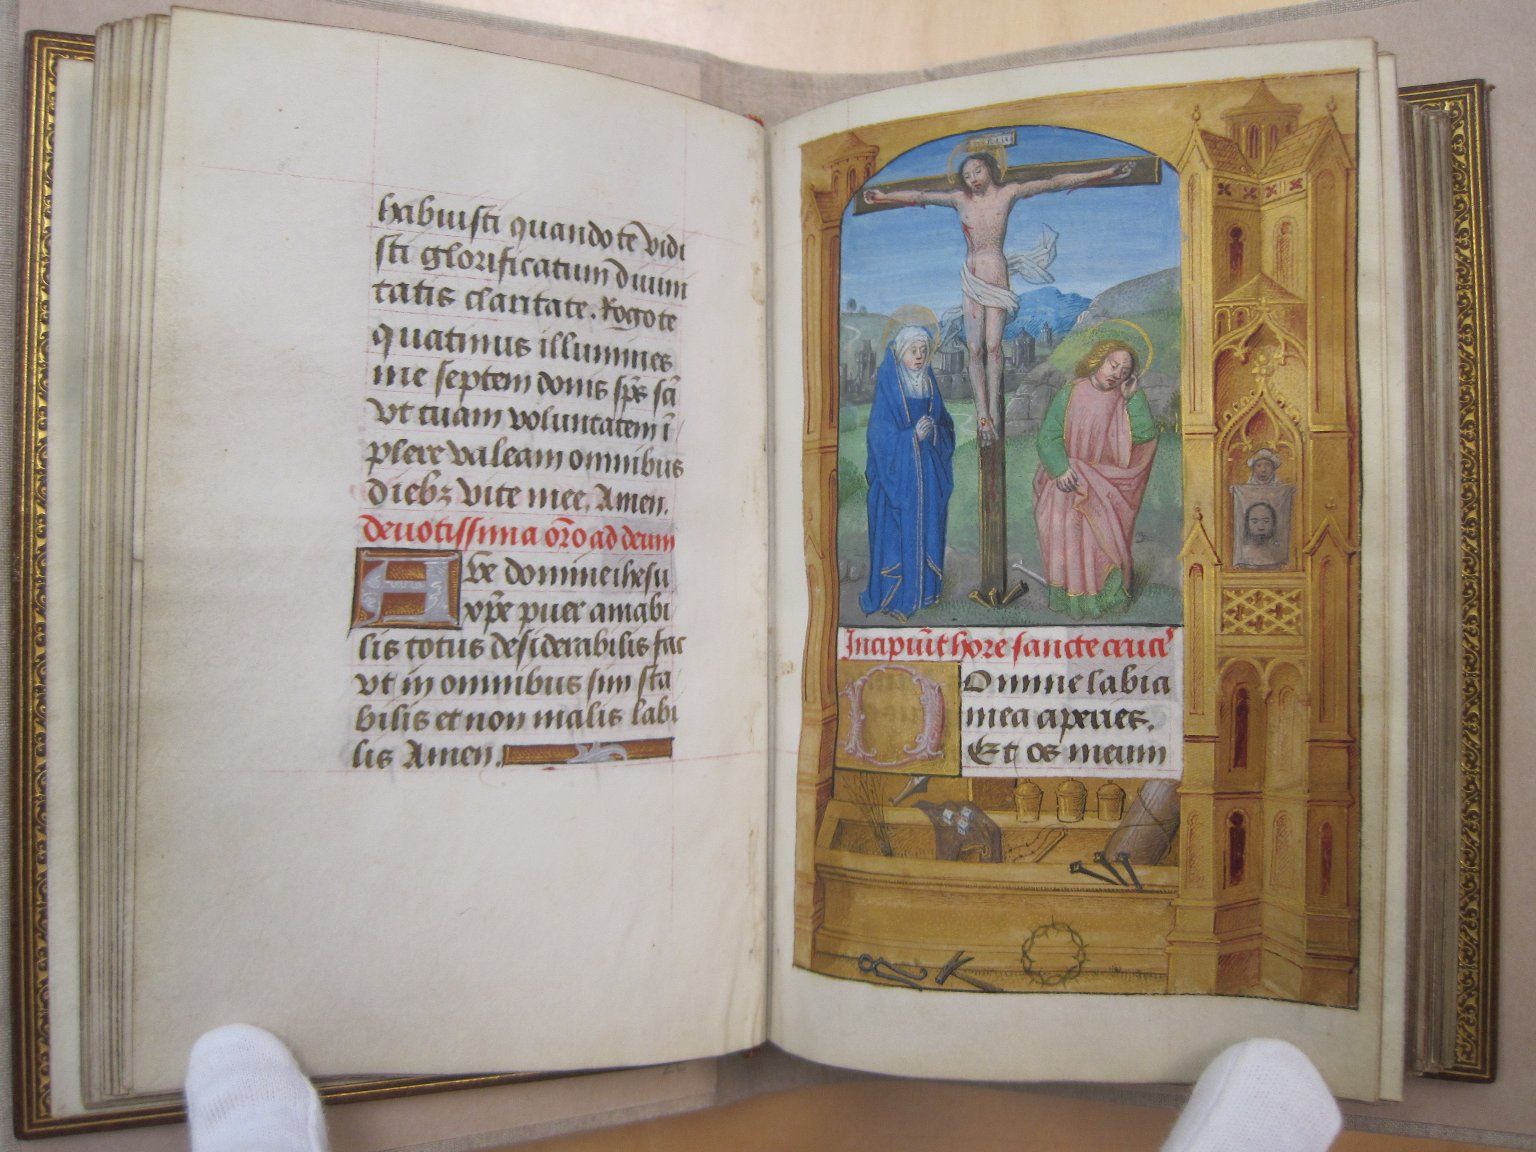 habuisti quando te vidi
sti glorificatum diuini
tatis claritate. Rogo te
quatinus illumines
me septem donis sp̄s sc̄i
vt tuam voluntatem ī
plere valeam omnibus
diebꝫ vite mee. Amen.
Deuotissima or̄o ad deum
Ave domine ihesu
xp̄e puer amabi
lis totus desiderabilis fac
vt in omnibus sim sta
bilis et non malis labi
lis Amen.
Incipiūt hore sancte crucꝰ
Domine labia
mea aperies.
Et os meum